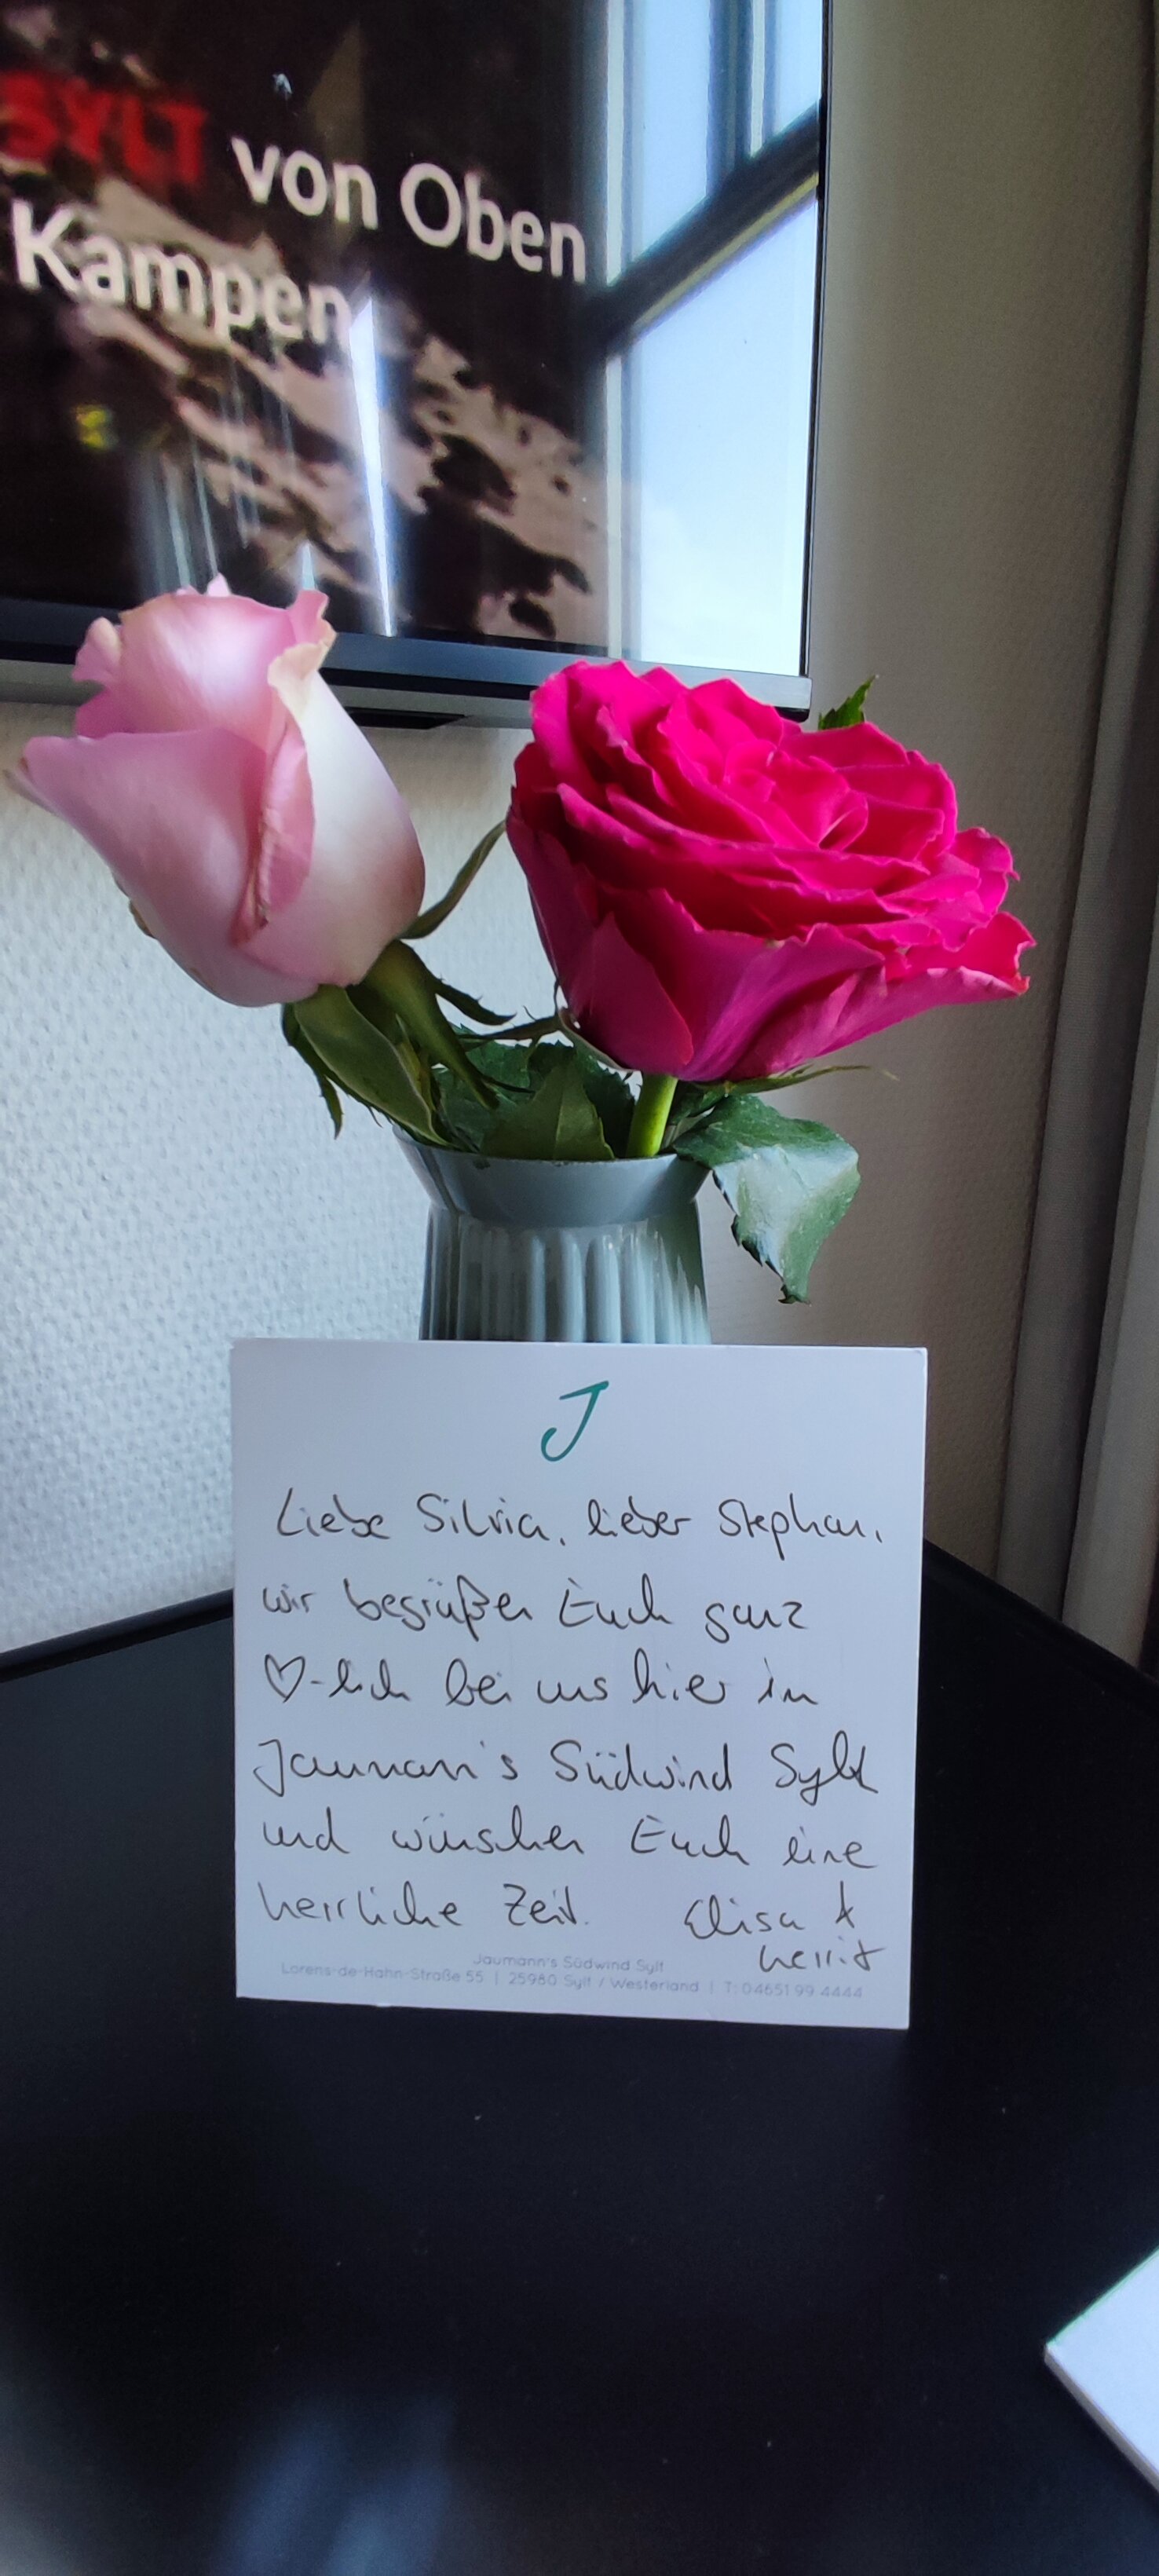 SYLT von Oben
Kampen
J
Liebe Silvia, lieber Stephan,
wir begrüßen Euch ganz
♡-lich bei uns hier im
Jaumann's Südwind Sylt
und wünschen Euch eine
herrliche Zeit. Elisa &
Jaumann's Südwind Sylt
Lorens-de-Hahn-Straße 55 | 25980 Sylt / Westerland | T: 04651 99 4444